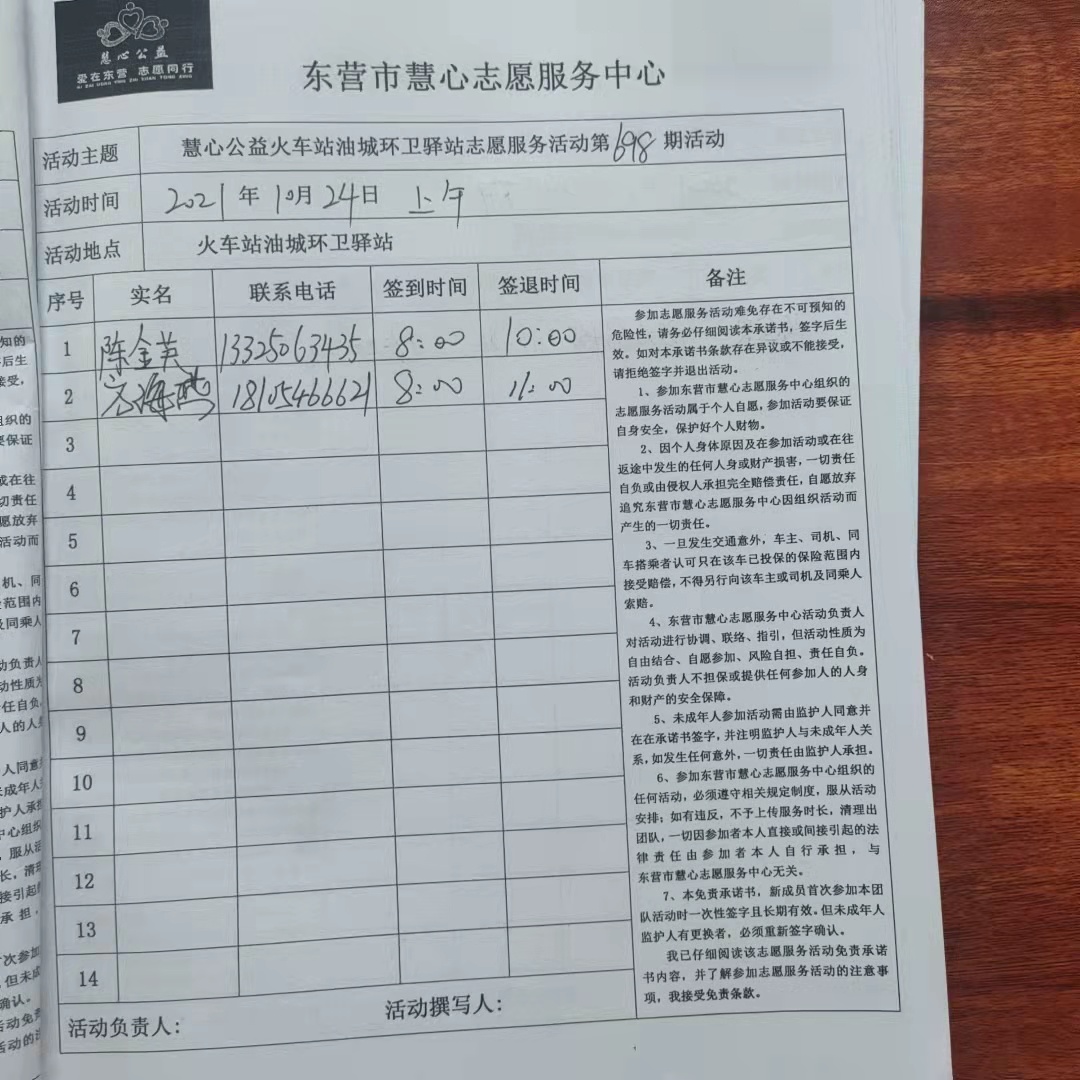 慧心公益
爱在东营 志愿同行
AI ZAI DONG YING ZHI YUAN TONG XING
东营市慧心志愿服务中心
活动主题 慧心公益火车站油城环卫驿站志愿服务活动第698期活动
活动时间 2021年10月24日 上午
活动地点 火车站油城环卫驿站
序号 实名 联系电话 签到时间 签退时间 备注
1 陈金英 13325063435 8:00 10:00
2 海燕 18105466621 8:00 11:00
3
4
5
6
7
8
9
10
11
12
13
14
参加志愿服务活动难免存在不可预知的
危险性,请务必仔细阅读本承诺书,签字后生
效。如对本承诺书条款存在异议或不能接受,
请拒绝签字并退出活动。
1、参加东营市慧心志愿服务中心组织的
志愿服务活动属于个人自愿,参加活动要保证
自身安全,保护好个人财物。
2、因个人身体原因及在参加活动或在往
返途中发生的任何人身或财产损害,一切责任
自负或由侵权人承担完全赔偿责任,自愿放弃
追究东营市慧心志愿服务中心因组织活动而
产生的一切责任。
3、一旦发生交通意外,车主、司机、同
车搭乘者认可只在该车已投保的保险范围内
接受赔偿,不得另行向该车主或司机及同乘人
索赔。
4、东营市慧心志愿服务中心活动负责人
对活动进行协调、联络、指引,但活动性质为
自由结合、自愿参加、风险自担、责任自负。
活动负责人不担保或提供任何参加人的人身
和财产的安全保障。
5、未成年人参加活动需由监护人同意并
在在承诺书签字,并注明监护人与未成年人关
系,如发生任何意外,一切责任由监护人承担。
6、参加东营市慧心志愿服务中心组织的
任何活动,必须遵守相关规定制度,服从活动
安排;如有违反,不予上传服务时长,清理出
团队,一切因参加者本人直接或间接引起的法
律责任由参加者本人自行承担,与
东营市慧心志愿服务中心无关。
7、本免责承诺书,新成员首次参加本团
队活动时一次性签字且长期有效。但未成年人
监护人有更换者,必须重新签字确认。
我已仔细阅读该志愿服务活动免责承诺
书内容,并了解参加志愿服务活动的注意事
项,我接受免责条款。
活动负责人: 活动撰写人: